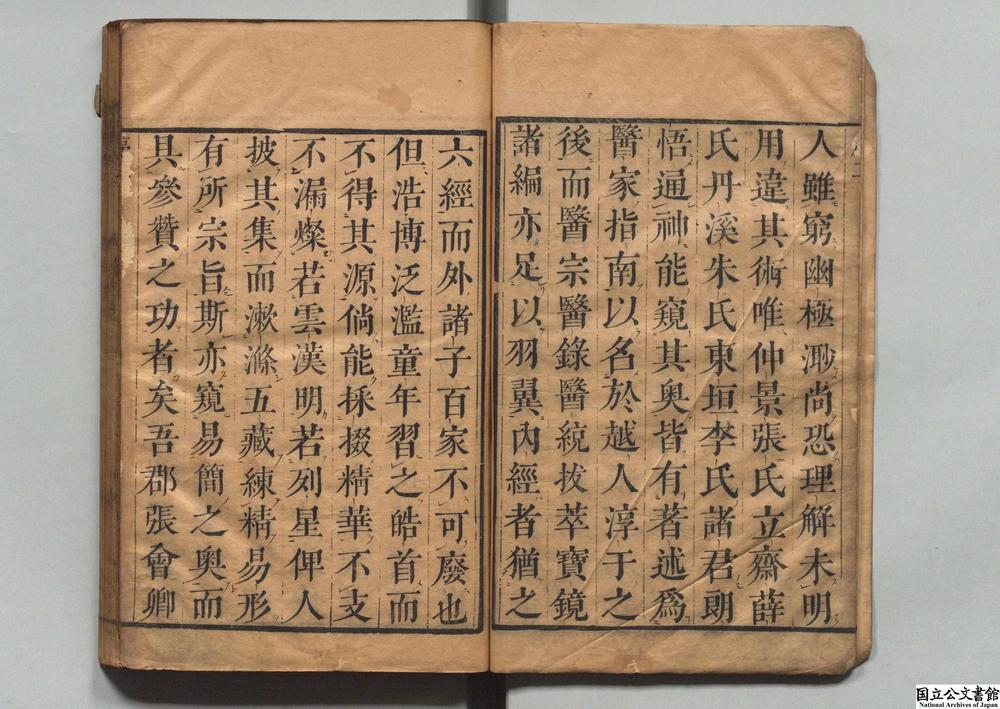 人雖窮幽極渺尚恐理解未明
用違其術唯仲景張氏立齋薛
氏丹溪朱氏東垣李氏諸君朗
悟通神能窺其奧皆有著述爲
醫家指南以名於越人淳于之
後而醫宗醫錄醫統拔萃寶鏡
諸編亦足以羽翼內經者猶之
六經而外諸子百家不可廢也
但浩博泛濫童年習之皓首而
不得其源倘能採掇精華不支
不漏燦若雲漢明若列星俾人
披其集而漱滌五藏練精易形
有所宗旨斯亦窺易簡之奧而
具參贊之功者矣吾郡張會卿
国立公文書館
National Archives of Japan